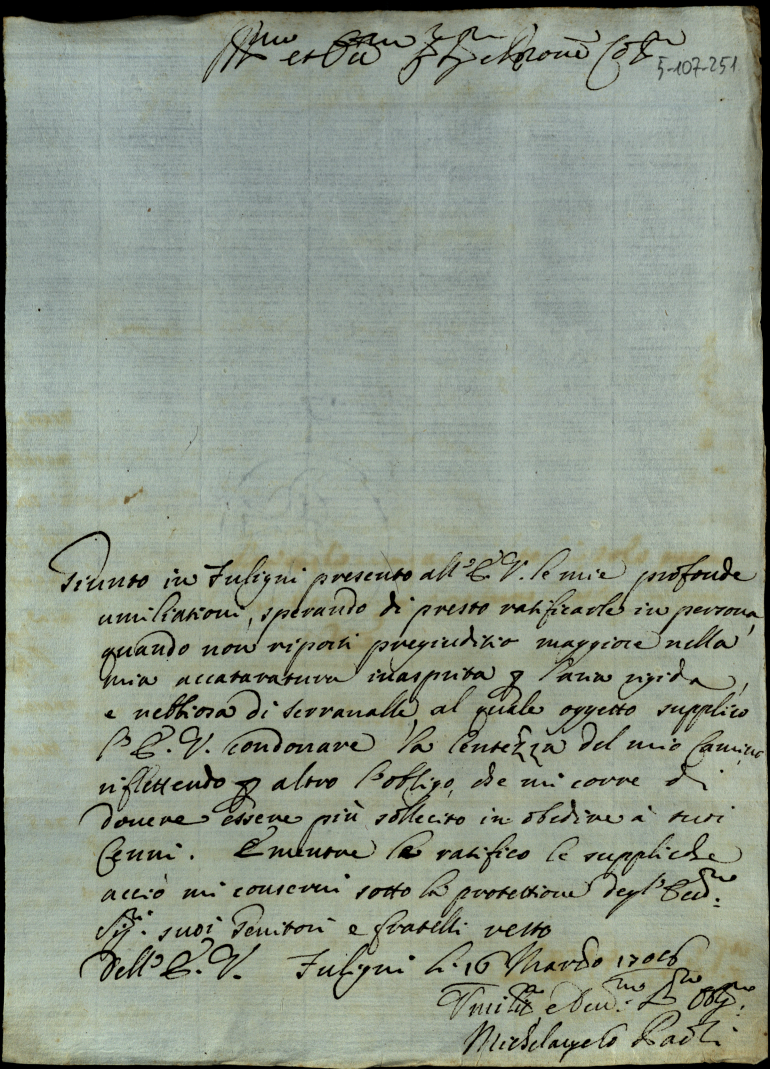 Ill.mo et Ecc.mo Sig.r Sig.r e Prone Col.mo
5-107-251
Giunto in Fuligni presento all'E.V. le mie profonde
umiliationi, sperando di presto ratificarle in persona,
quando non riporti pregiuditio maggiore nella
mia accataratura inasprita p l'aria rigida,
e nebbiosa di Serravalle, al quale oggetto supplico
l'E.V. condonare la lentezza del mio Camino,
riflettendo p altro l'obligo, che mi corre di
dovere essere più sollecito in obedire à suoi
Cenni. E mentre le ratifico le suppliche
acciò mi conservi sotto la protettione degl'Ecc.mi
Sig.ri suoi Genitori e fratelli resto
Dell'E.V. Fuligni li 16 Marzo 1706
Umil.mo e Dev.mo Ser.re Obg.mo
Michelangelo Paoli